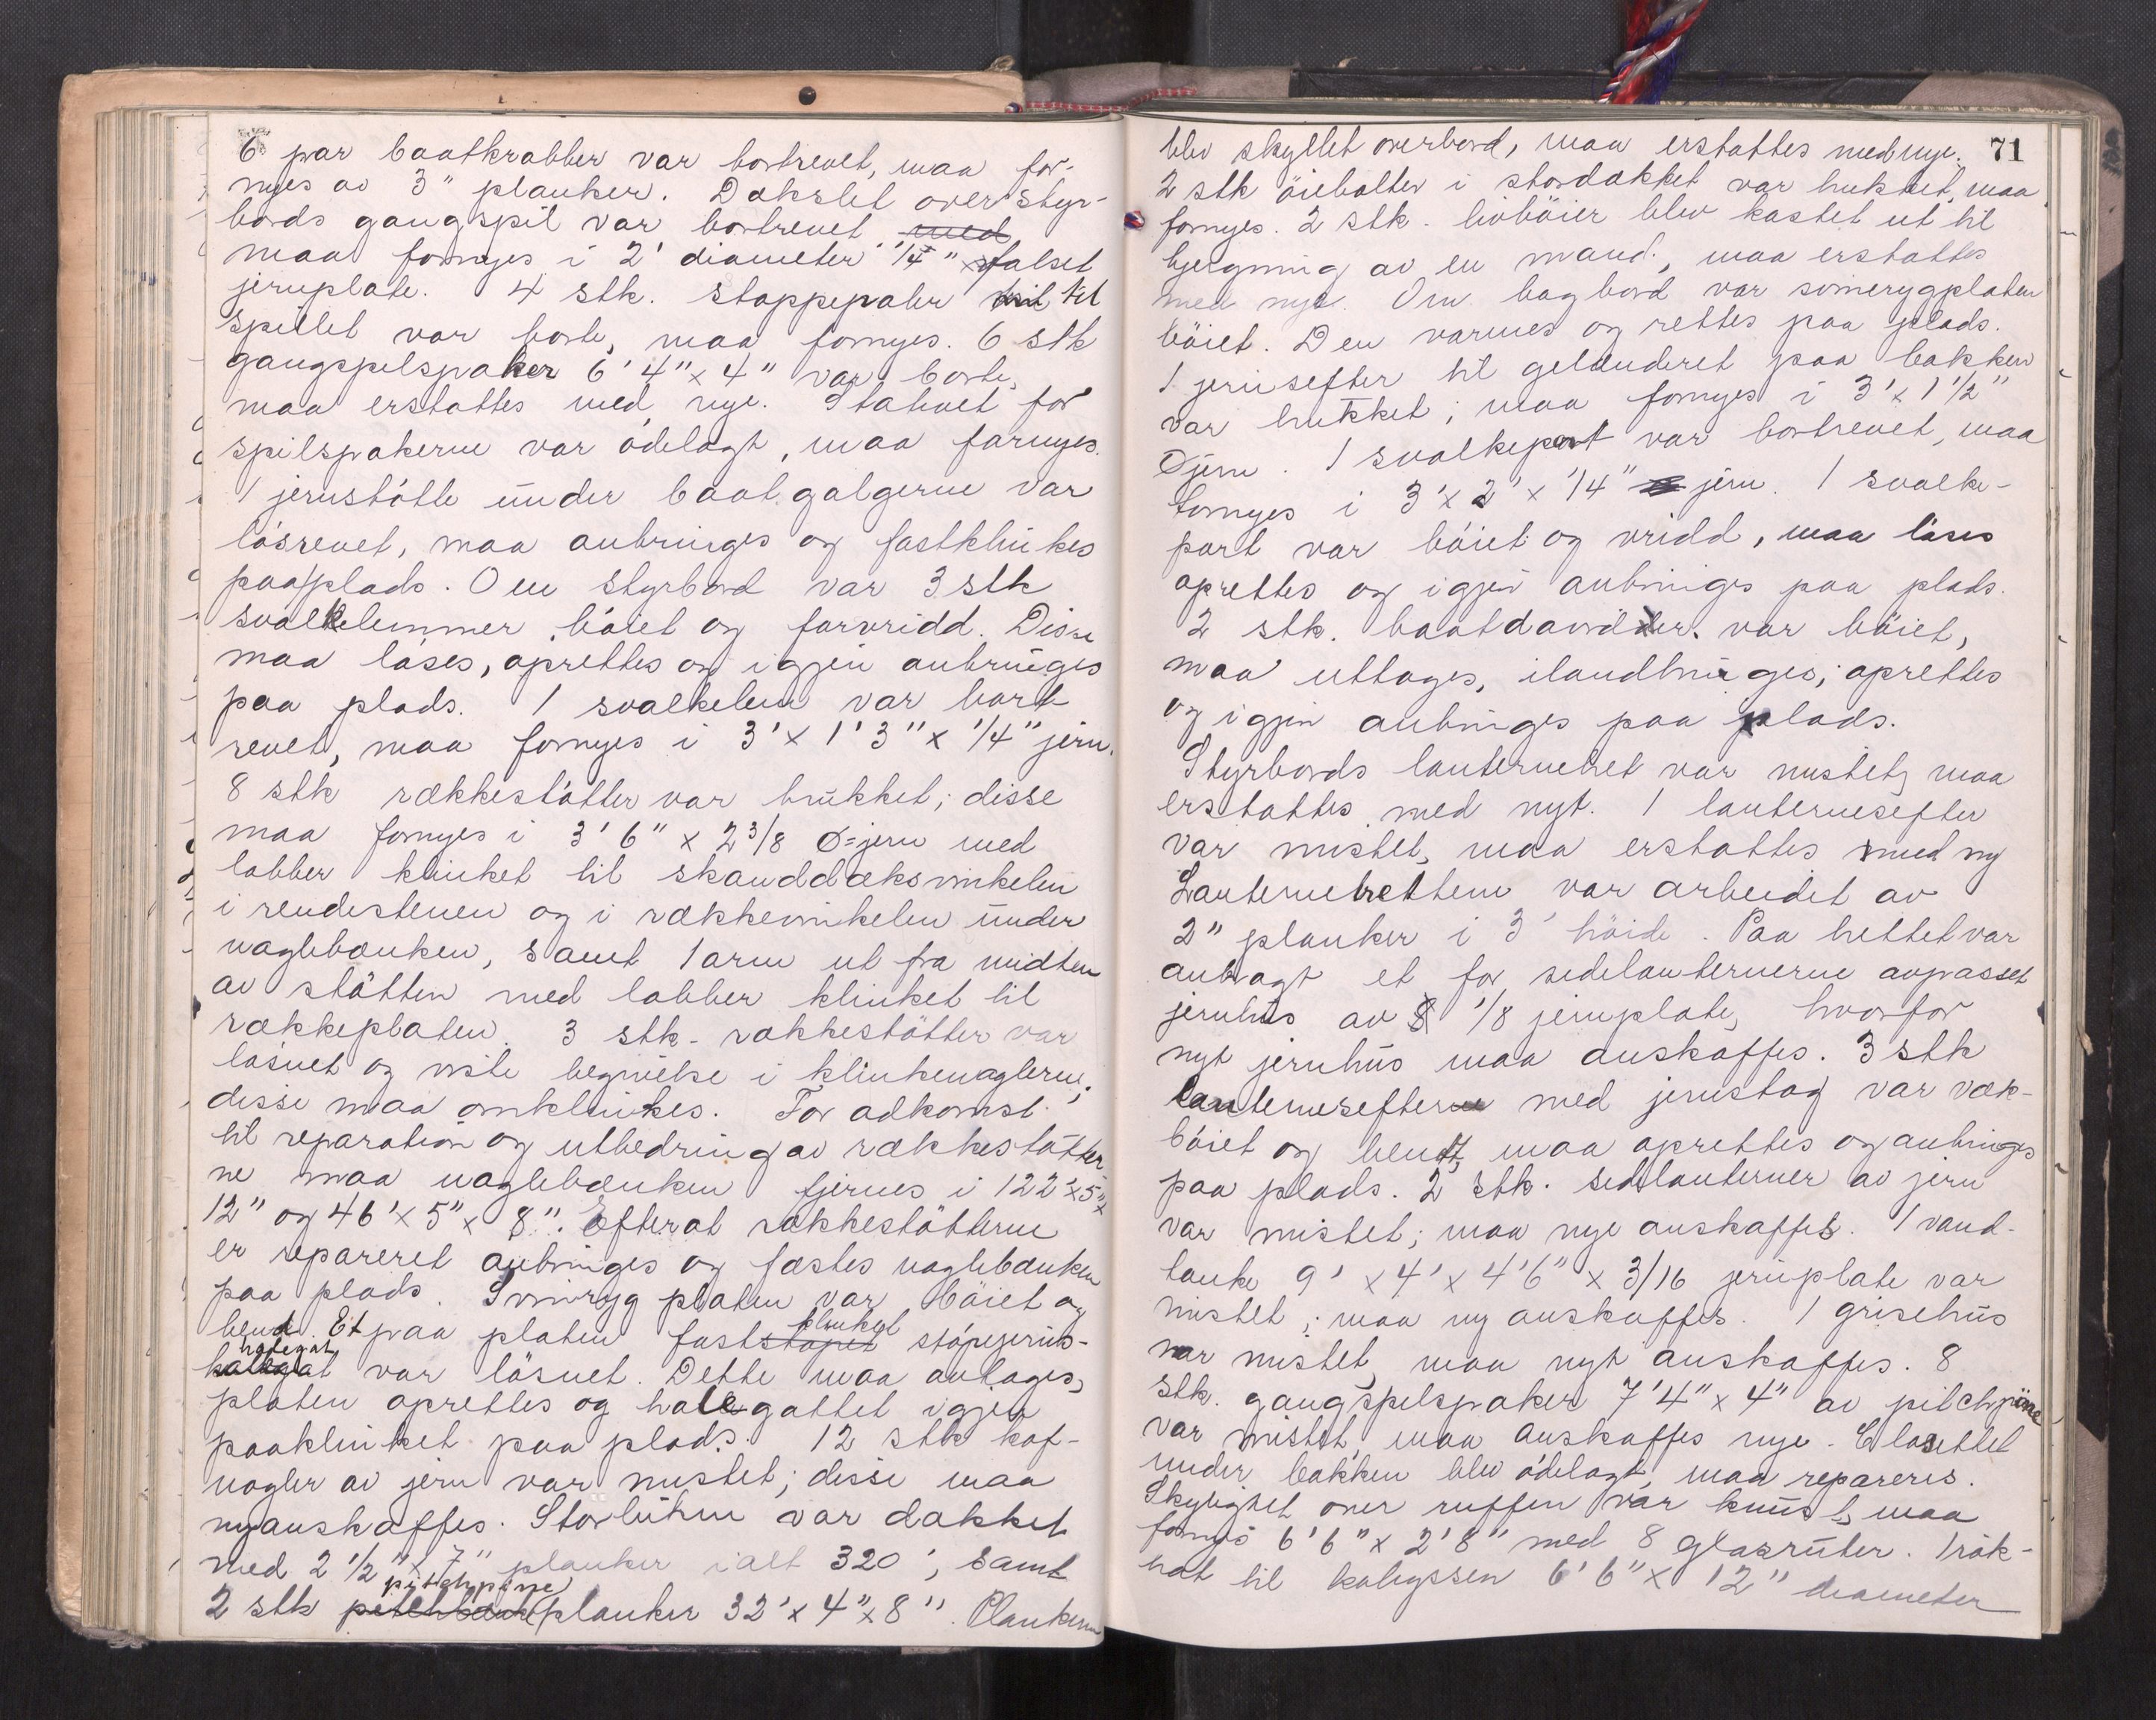 6 par baatkrabber var bortrevet, maa for-
nyes av 3" planker. Dækslet over styr-
bords gangspil var bortrevet med
maa fornyes i 2' diameter 1/4" falset
jernplate. 4 stk. stoppepaler til
spillet var borte, maa fornyes. 6 stk
gangspilspaker 6' 4" x 4" var borte,
maa erstattes med nye. Stativet for
spilspakerne var ödelagt, maa fornyes.
1 jernstötte under baatgalgerne var
lösrevet, maa anbringes og fastklinkes
paa plads. Om styrbord var 3 stk
svalkelemmer böiet og forvridd. Disse
maa löses, oprettes og igjen anbringes
paa plads. 1 svalkelem var bort-
revet, maa fornyes i 3' x 1' 3" x 1/4" jern.
8 stk rækkestötter var brukket; disse
maa fornyes i 3' 6" x 2 3/8 Ø=jern med
labber klinket til skanddæksvinkelen
i rendestenen og i rækkevinkelen under
naglebænken, samt 1 arm ut fra midten
av stötten med labber klinket til
rækkeplaten. 3 stk. rækkestötter var
lösnet og viste begivelse i klinkenaglerne;
disse maa omklinkes. For adkomst
til reparation og utbedring av rækkestötter-
ne maa naglebænken fjernes i 122' x 5" x
12" og 46' x 5" x 8". Efterat rækkestötterne
er repareret anbringes og fæstes naglebænken
paa plads. Svinryg platen var böiet og
bendt. Et paa platen faststöpet klinket stöpejerns-
halegat var lösnet. Dette maa avtages,
platen oprettes og halegattet igjen
paaklinket paa plads. 12 stk kof-
nagler av jern var mistet; disse maa
nyanskaffes. Storluken var dækket
med 2 1/2" x 7" planker ialt 320', samt
2 stk pitchpine planker 32' x 4" x 8". Plankerne
71
blev skyllet overbord, maa erstattes med nye.
2 stk öiebolter i stordækket var brukket, maa
fornyes. 2 stk. livböier blev kastet ut til
bjergning av en mand, maa erstattes
med nye. Om bagbord var svinerygplaten
böiet. Den varmes og rettes paa plads.
1 jernsefter til gelænderet paa bakken
var brukket; maa fornyes i 3' x 1 1/2"
Ø jern. 1 svalkeport var bortrevet, maa
fornyes i 3' x 2' x 1/4" jern. 1 svalke-
port var böiet og vridd, maa löses
oprettes og igjen anbringes paa plads.
2 stk. baatdavidder var böiet,
maa uttages, ilandbringes, oprettes
og igjen anbringes paa plads.
Styrbords lanternebret var mistet, maa
erstattes med nyt. 1 lanternesefter
var mistet, maa erstattes med ny
Lanternebrettene var arbeidet av
2" planker i 3' höide. Paa brettet var
anbragt et for sidelanternerne avpasset
jernhus av 1/8 jernplate, hvorfor
nyt jernhus maa anskaffes. 3 stk
lanternesefter med jernstag var væk-
böiet og bendt, maa oprettes og anbringes
paa plads. 2 stk. sidelanterner av jern
var mistet; maa nye anskaffes. 1 vand-
tanke 9' x 4' x 4' 6" x 3/16 jernplate var
mistet; maa ny anskaffes. 1 grisehus
var mistet, maa nyt anskaffes. 8
stk. gangspilspaker 7' 4" x 4" av pitchpine
var mistet, maa anskaffes nye. Closettet
under bakken blev ödelagt, maa repareres.
Skylightet over ruffen var knust, maa
fornyes 6' 6" x 2' 8" med 8 glasruter. 1 rök-
hat til kabyssen 6' 6" x 12" diameter